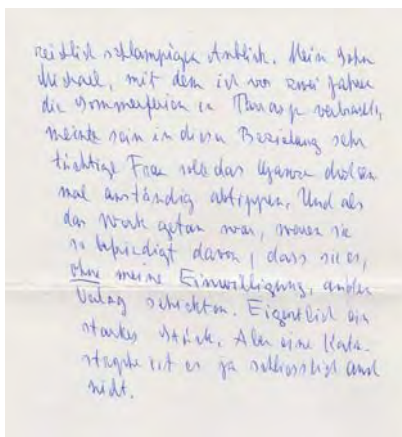 reichlich schlampigen Anblick. Mein Sohn
Michael, mit dem ich vor zwei Jahren
die Sommerferien in verbracht,
meinte sein in dieser Beziehung sehr
tüchtige Frau solle das Ganze doch ein
mal anständig abtippen. Und als
das Werk getan war, waren sie
so befriedigt davon, dass sie es,
ohne meine Einwilligung, an den
Verlag schickten. Eigentlich ein
starkes Stück. Aber eine Kata-
strophe ist es ja schliesslich auch
nicht.